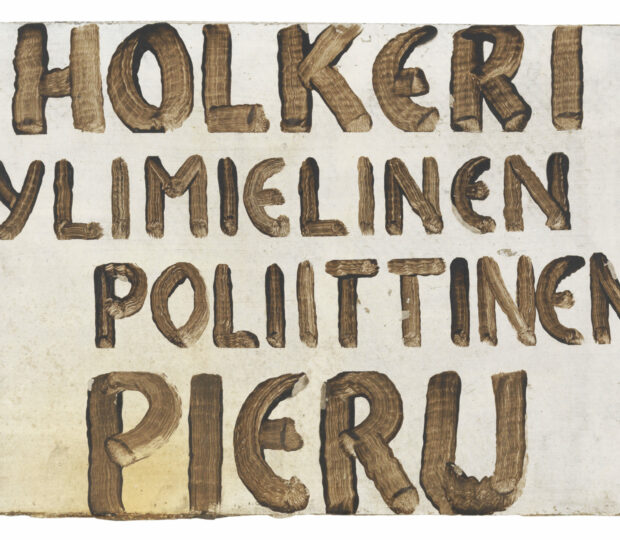 HOLKERI
YLIMIELINEN
POLIITTINEN
PIERU